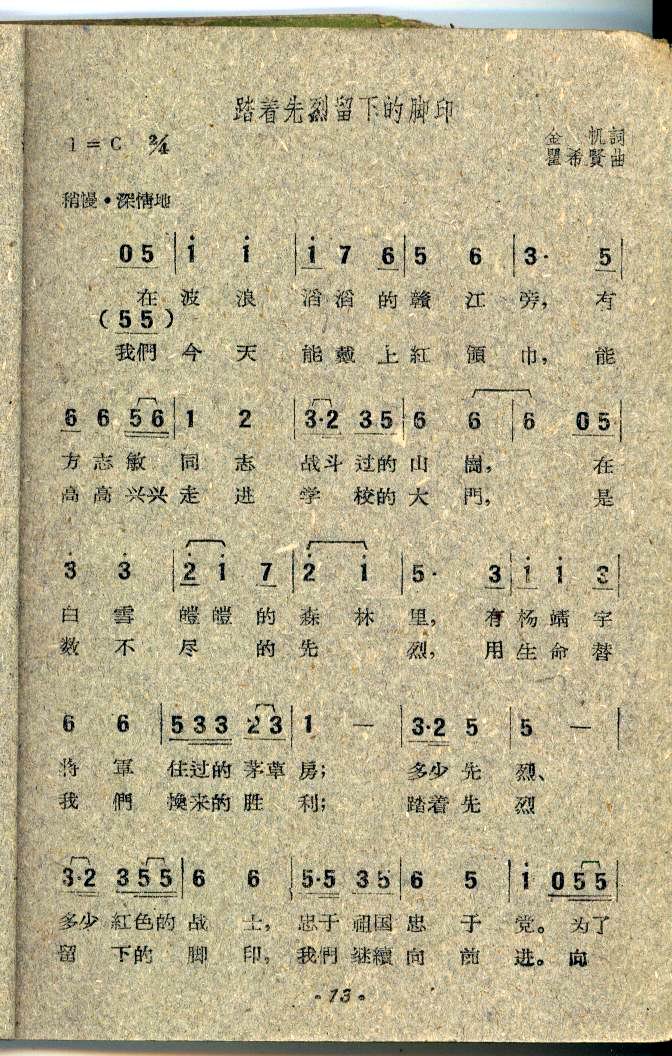 踏着先烈留下的脚印
1 = C 2/4
金 帆 詞
瞿希賢曲
稍慢·深情地
0 5 | 1 1 | 1 7 6 | 5 6 | 3· 5 |
在 波 浪 滔 滔 的 贛 江 旁, 有
(5 5)
我們 今 天 能 戴 上 紅 領 巾, 能
6 6 5 6 | 1 2 | 3·2 3 5 | 6 6 | 6 0 5 |
方 志 敏 同 志 战斗 过的 山 崗, 在
高 高 兴兴 走 进 学 校的 大 門, 是
3 3 | 2 1 7 | 2 1 | 5· 3 | 1 1 3 |
白 雪 皚皚 的 森 林 里, 有 杨 靖 宇
数 不 尽 的 先 烈, 用 生 命 替
6 6 | 5 3 3 2 3 | 1 — | 3·2 5 | 5 — |
將 軍 住过的 茅草 房; 多少 先 烈、
我 們 換来的 胜 利; 踏着 先 烈
3·2 3 5 5 | 6 6 | 5·5 3 5 | 6 5 | 1 0 5 5 |
多少 紅色的 战 士, 忠于 祖国 忠 于 党。 为了
留 下的 脚 印, 我們 継續 向 前 进。 向
·13·